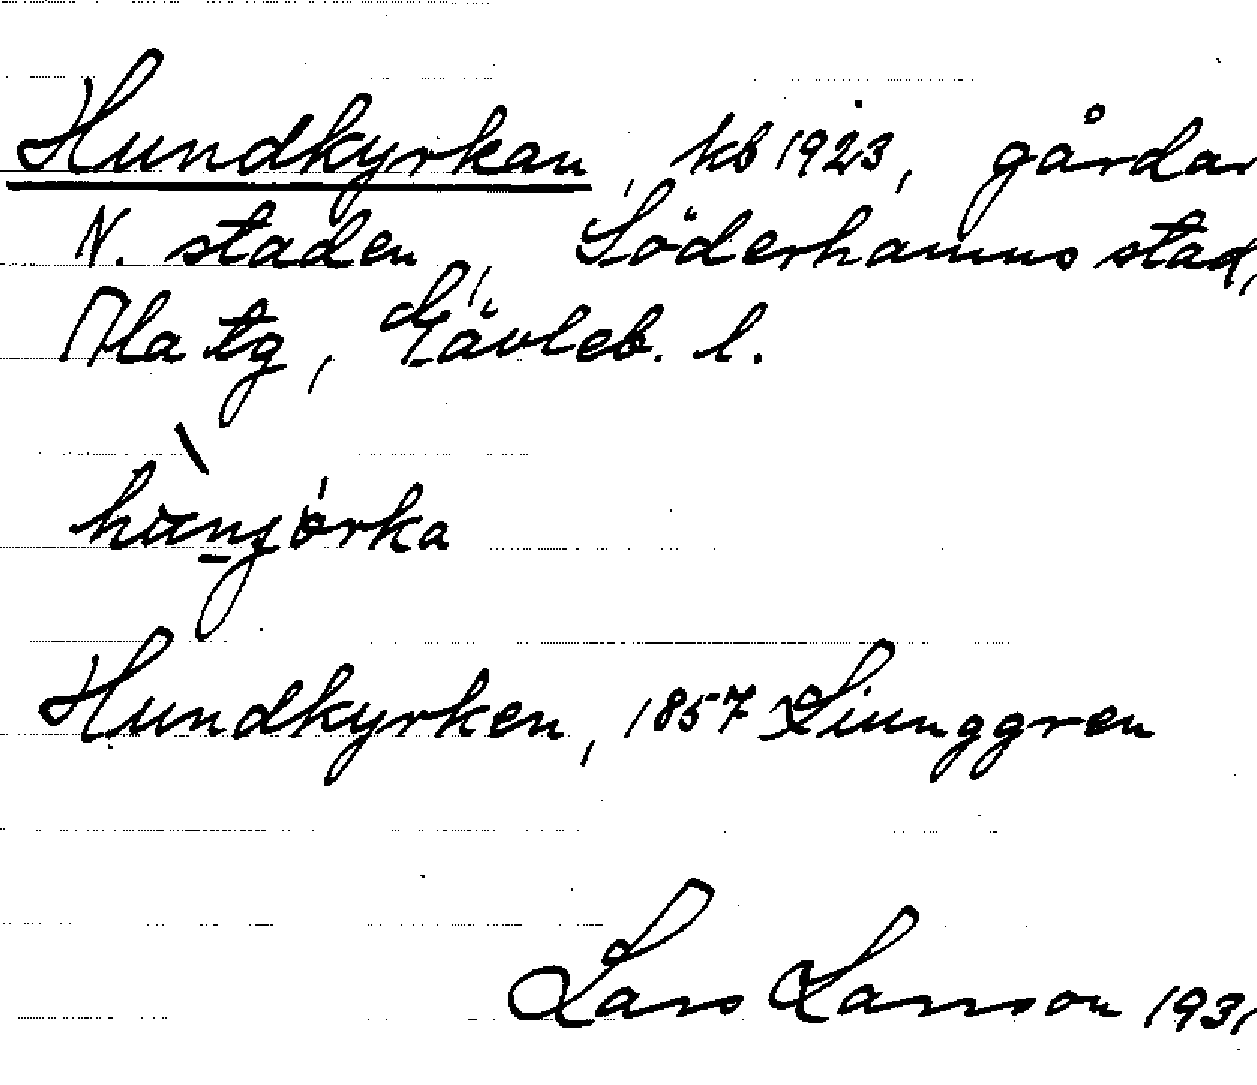 Hundkyrkan, kb 1923, gårdar
N. staden, Söderhamns stad,
Ala tg, Gävleb. l.
Hundkyrken, 1857 Liunggren
Lars Larsson 1931